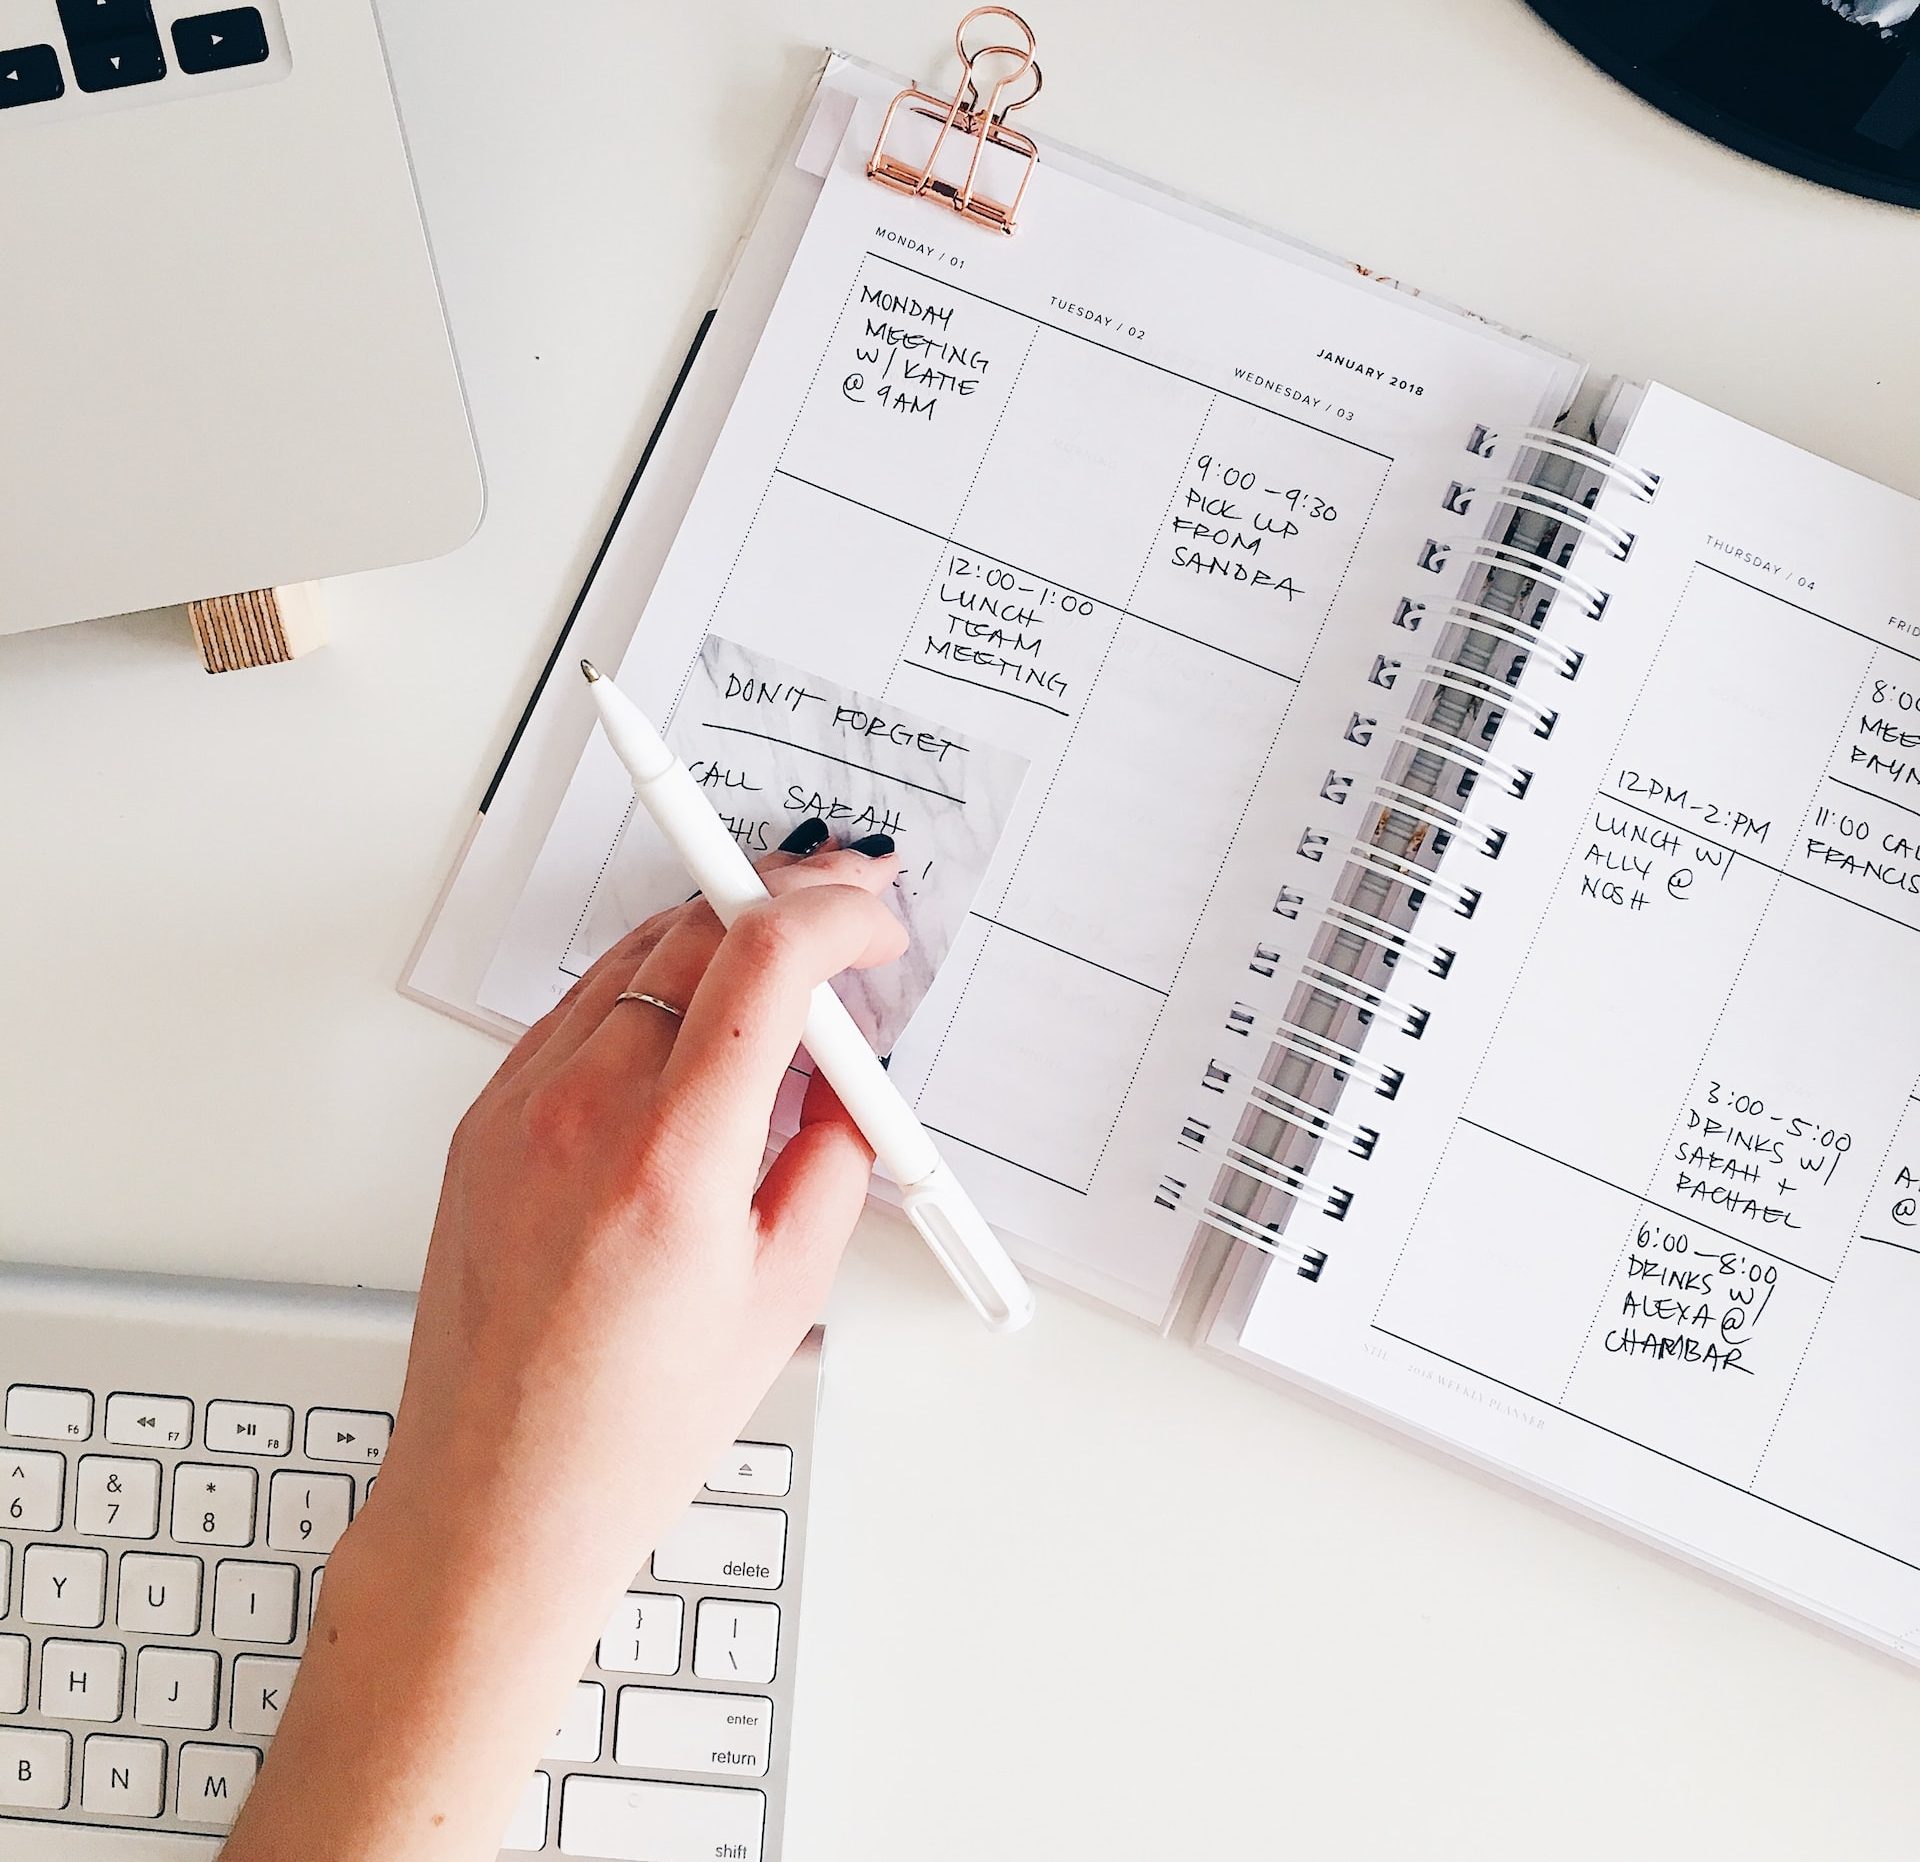 MONDAY / 01
MONDAY
MEETING
W/ KATIE
@ 9AM
TUESDAY / 02
12:00-1:00
LUNCH
TEAM
MEETING
JANUARY 2018
WEDNESDAY / 03
9:00-9:30
PICK UP
FROM
SANDRA
DON'T FORGET
CALL SARAH
THIS
!
THURSDAY / 04
12PM-2:PM
LUNCH W/
ALLY @
NOSH
8:00
11:00
3:00-5:00
DRINKS W/
SARAH +
RACHAEL
6:00-8:00
DRINKS W/
ALEXA @
CHAMBAR
@
2018 WEEKLY PLANNER
F6
F7
F8
F9
^
6
&
7
*
8
(
9
delete
Y
U
I
}
]
|
\
H
J
K
enter
return
B
N
M
shift